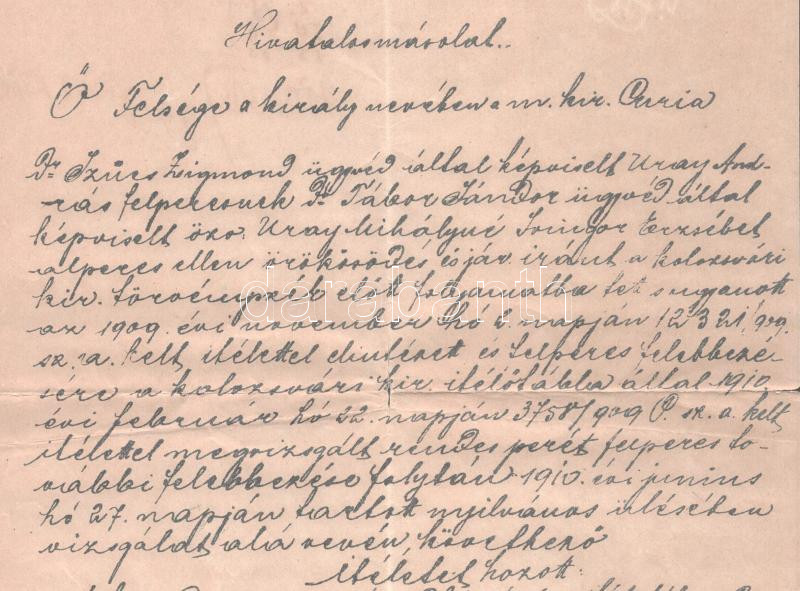 Hivatalos másolat.
Ő Felsége a király nevében a m. kir. Curia
Dr Szűcs Zsigmond ügyvéd által képviselt Uray And-
rás felperesnek Dr Tábor Sándor ügyvéd által
képviselt özv. Uray Mihályné Erzsébet
alperes ellen örökösödés és jár. iránt a kolozsvári
kir. törvényszék előtt folyamatba tet s ugyanott
az 1909. évi november hó 6. napján 12321/909
sz. a. kelt itélettel elintézett és felperes felebbezé-
sére a kolozsvári kir. itélőtábla által 1910
évi február hó 22. napján 3758/909 P. sz. a. kelt
itélettel megvizsgált rendes perét felperes to-
vábbi felebbezése folytán 1910. évi junius
hó 27. napján tartott nyilvános ülésében
vizsgálat alá vevén, következő
itéletet hozott:
darabanth